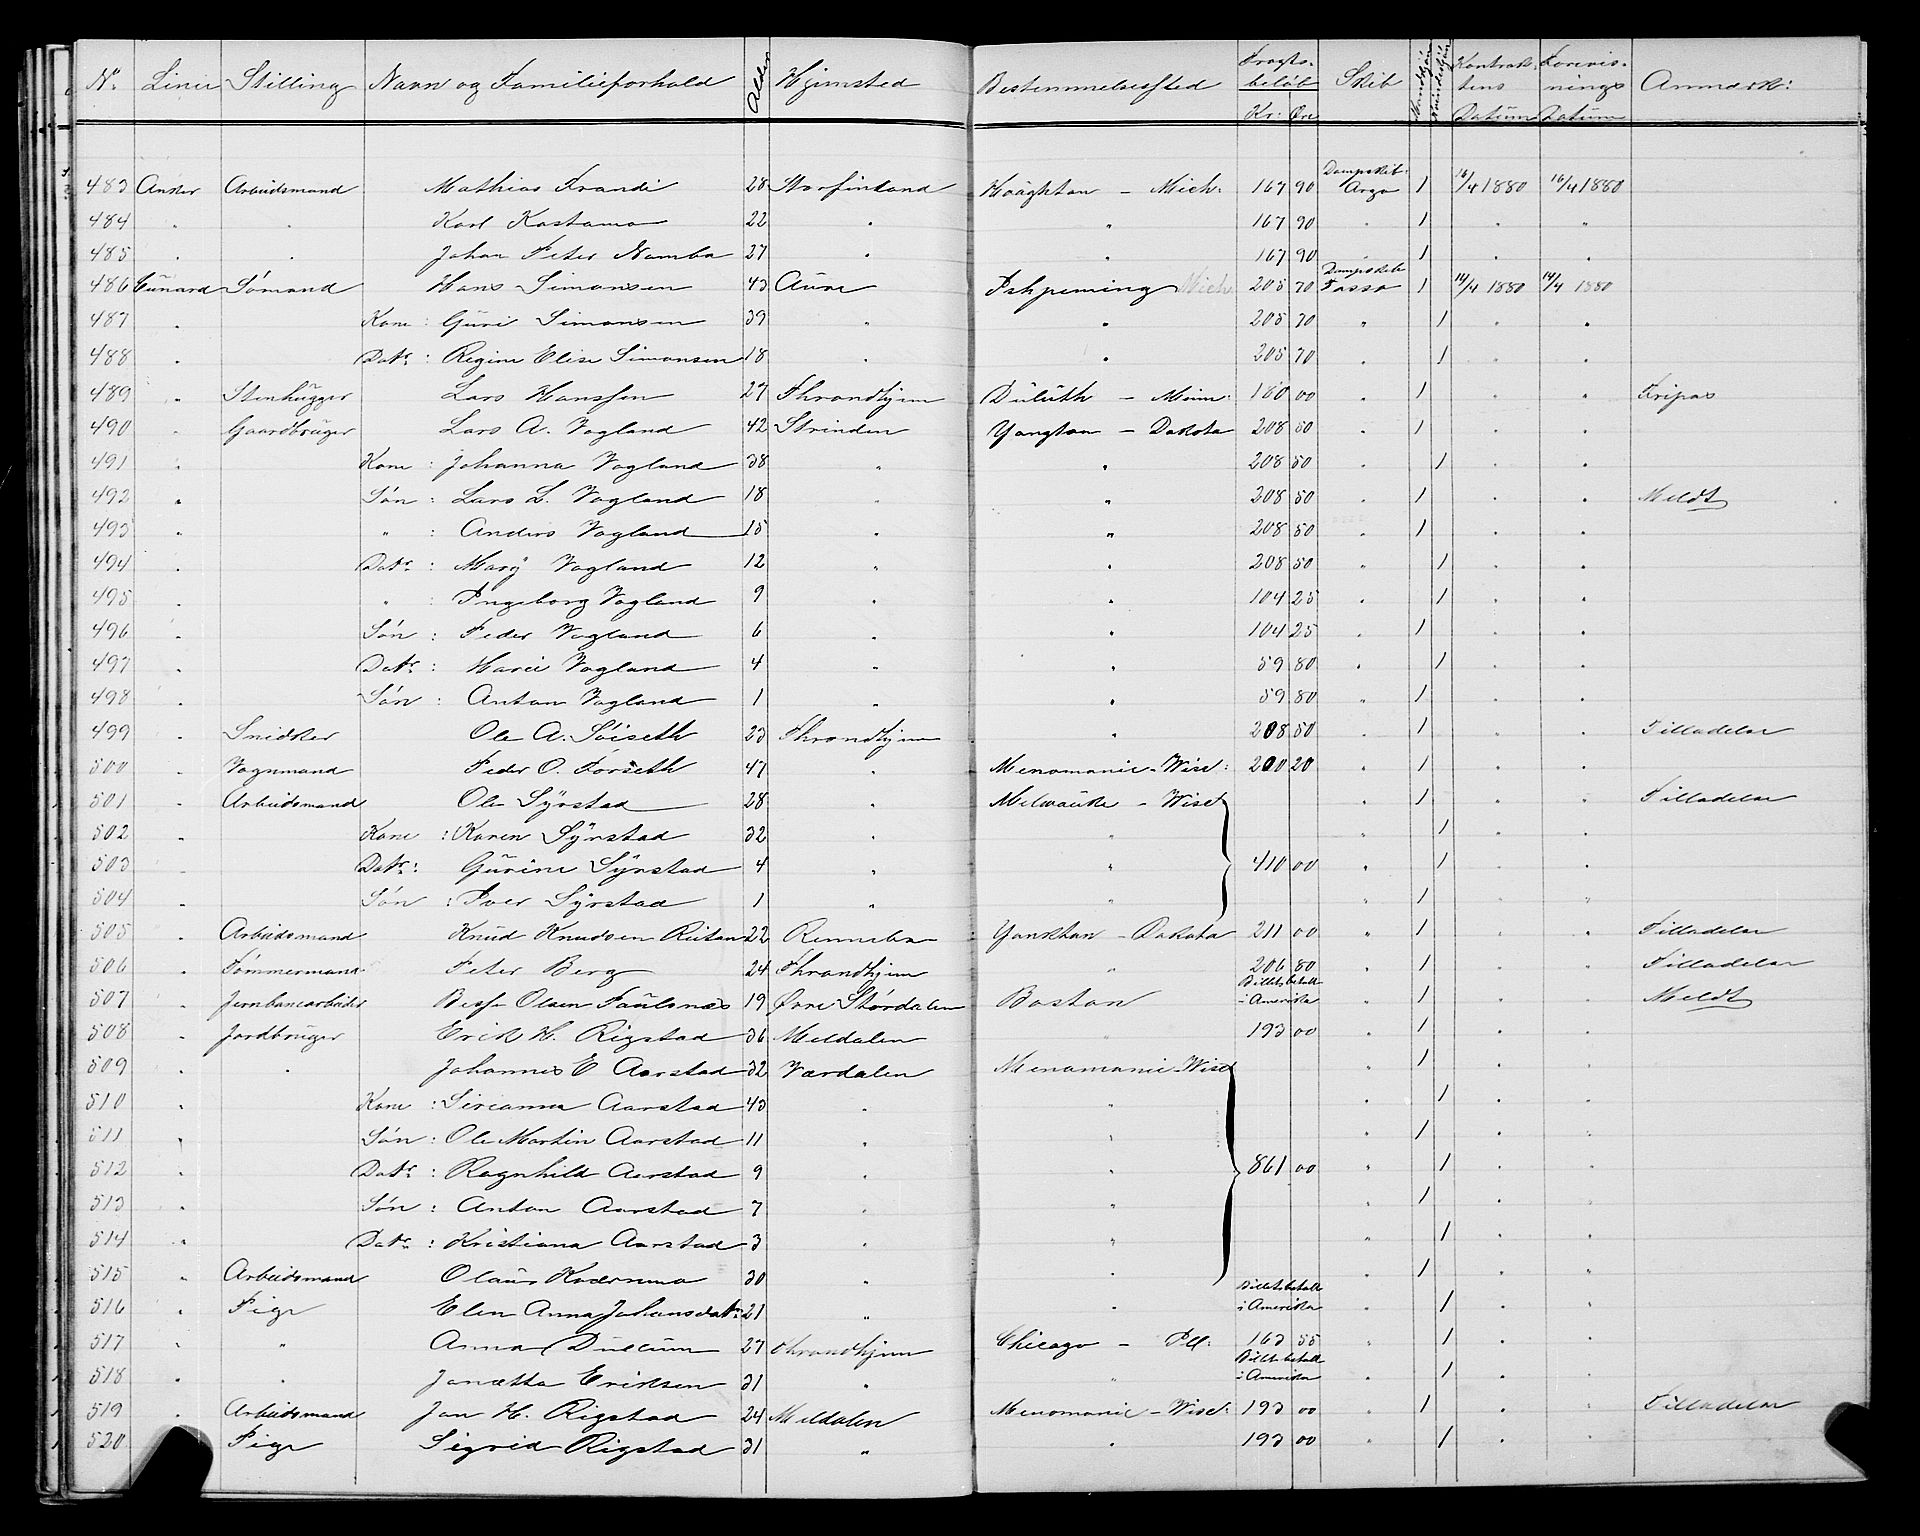 No. Linie Stilling Navn og Familieforhold Alder Hjemsted Bestemmelsessted Fragtbeløb Kr: Øre Skib Mandkjøn Kvindekjøn Kontraktens Datum Forevisnings Datum Anmærk:
483 Anker Arbeidsmand Mathias Frandi 28 Storfinland Haaghton - Mich: 167 90 Dampskib: Argo 1 16/4 1880 16/4 1880
484 " " Karl Kastamo 22 " " 167 90 " 1 " "
485 " " Johan Peter Namba 27 " " 167 90 " 1 " "
486 Cunard Sømand Hans Simonsen 43 Aure Ishpeming Mich 205 70 Dampskib Tasso 1 14/4 1880 14/4 1880
487 " Kone: Guri Simonsen 39 " " 205 70 " 1 " "
488 " Datr: Regine Elise Simonsen 18 " " 205 70 " 1 " "
489 " Stenhugger Lars Hanssen 27 Throndhjem Duluth - Minn: 180 00 " 1 " " Fripas
490 " Gaardbruger Lars A. Vogland 42 Strinden Yangton - Dakota 208 50 " 1 " "
491 " Kone: Johanna Vogland 38 " " 208 50 " 1 " "
492 " Søn: Lars L. Vogland 18 " " 208 50 " 1 " " Meldt
493 " " : Anders Vogland 15 " " 208 50 " 1 " "
494 " Datr: Mary Vogland 12 " " 208 50 " 1 " "
495 " " : Ingeborg Vogland 9 " " 104 25 " 1 " "
496 " Søn: Peder Vogland 6 " " 104 25 " 1 " "
497 " Datr: Marie Vogland 4 " " 59 80 " 1 " "
498 " Søn: Anton Vogland 1 " " 59 80 " 1 " "
499 " Snidker Ole A. Søiseth 23 Throndhjem " 208 50 " 1 " " Tilladelse
500 " Vognmand Peder O. Forseth 47 " Menomonie - Wisc: 200 20 " 1 " "
501 " Arbeidsmand Ole Syrstad 28 " Milwauke - Wisc " 1 " " Tilladelse
502 " Kone: Karen Syrstad 32 " " " 1 " "
503 " Datr: Gurine Syrstad 4 " " 410 00 " 1 " "
504 " Søn: Iver Syrstad 1 " " " 1 " "
505 " Arbeidsmand Knud Knudsen Ritan 22 Rennebo Yankton - Dakota 211 00 " 1 " " Tilladelse
506 " Tømmermand Peter Berg 24 Throndhjem " 206 80 " 1 " " Tilladelse
507 " Jernbanearbeider Bess Olsen Faulsnæs 19 Øvre Størdalen Boston Billet betalt i Amerika " 1 " " Meldt
508 " Jordbruger Erik H. Rigstad 36 Meldalen " 193 00 " 1 " "
509 " " Johannes E Aarstad 32 Værdalen Menomonie - Wisc " 1 " "
510 " Kone: Sirianna Aarstad 43 " " " 1 " "
511 " Søn: Ole Martin Aarstad 11 " " " 1 " "
512 " Datr: Ragnhild Aarstad 9 " " 861 00 " 1 " "
513 " Søn: Anton Aarstad 7 " " " 1 " "
514 " Datr: Kristiana Aarstad 3 " " " 1 " "
515 " Arbeidsmand Olaus Kværnmo 30 " " " 1 " "
516 " Pige Elen Anna Johansdatr 21 " " Billet betalt i Amerika " 1 " "
517 " " Anna Dullum 27 Throndhjem Chicago - Ill: 163 55 " 1 " "
518 " " Janetta Eriksen 31 " " Billet betalt i Amerika " 1 " "
519 " Arbeidsmand Jon H. Rigstad 24 Meldalen Menomonie - Wisc: 193 00 " 1 " " Tilladelse
520 " Pige Sigrid Rigstad 31 " " 193 00 " 1 " "